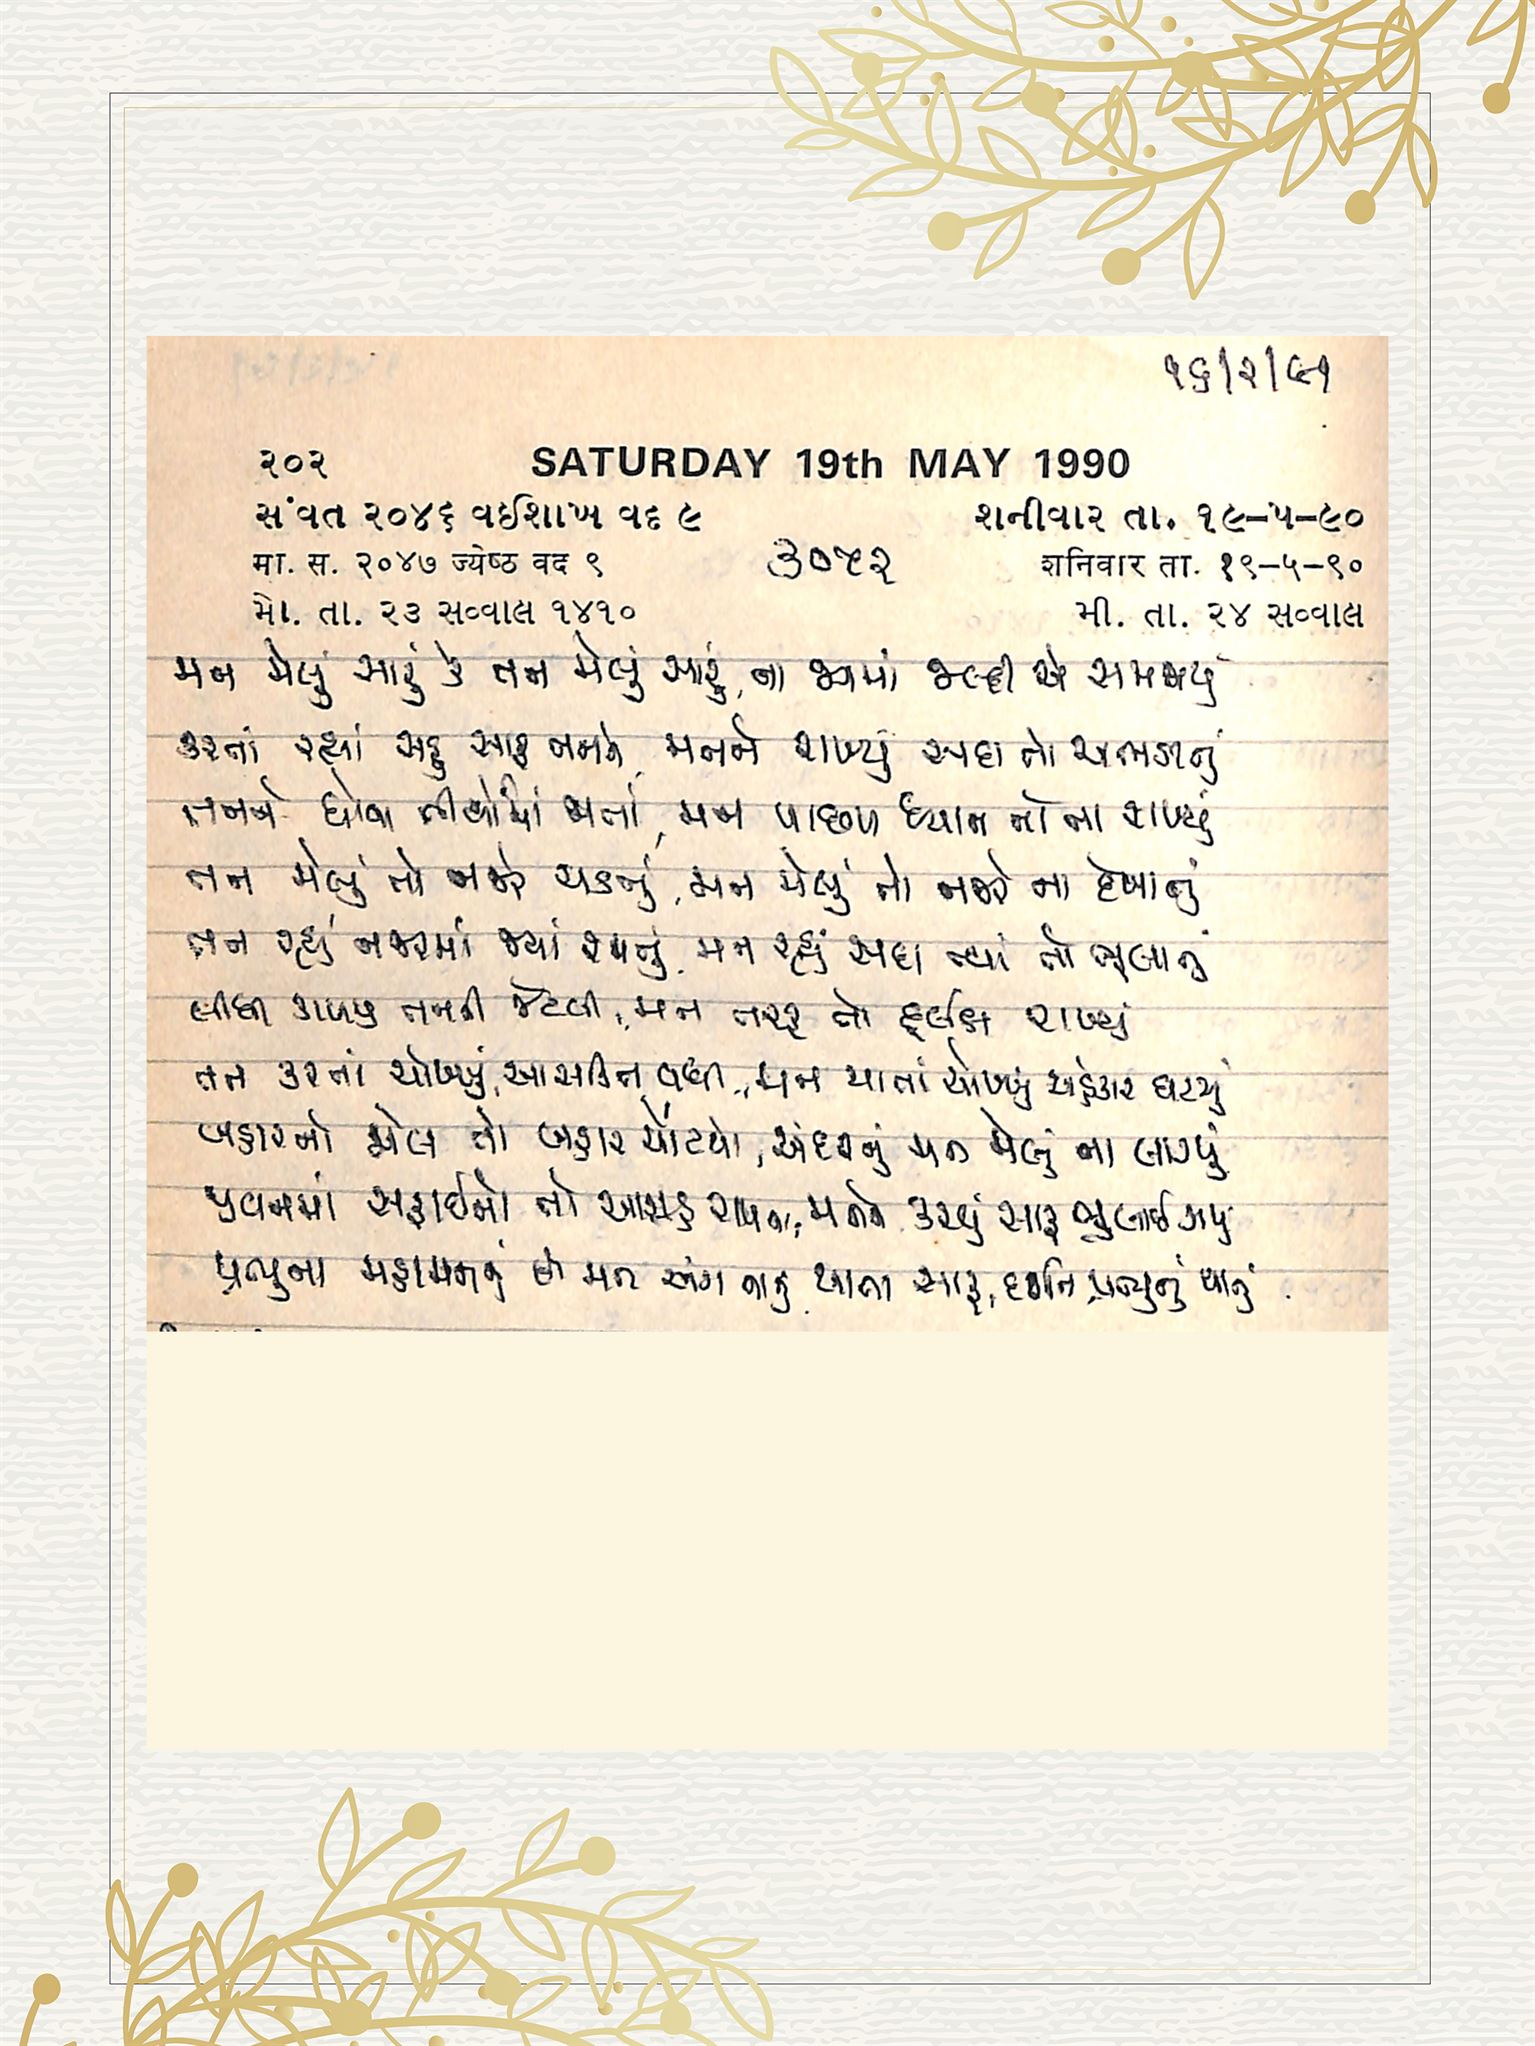 ૧૬/૨/૯૧
૨૦૨ SATURDAY 19th MAY 1990
સંવત ૨૦૪૬ વઈશાખ વદ ૯ શનીવાર તા. ૧૯-૫-૯૦
मा. स. २०४७ ज्येष्ठ वद ९ शनिवार ता. १९-५-९०
મો. તા. ૨૩ સવ્વાલ ૧૪૧૦ મી. તા. ૨૪ સવ્વાલ
મન મેલું સારું કે તન મેલું સારું, ના જગમાં જલ્દી એ સમજાયું
કરતાં રહ્યાં સહુ સાફ તનને, મનને રાખ્યું સદા તો અભડાતું
તનને ધોવા તીર્થોમાં જાતાં, મન પાછળ ધ્યાન તો ના રાખ્યું
તન મેલું તો નજરે ચડતું, મન મેલું તો નજરે ના દેખાતું
તન રહ્યું નજરમાં જ્યાં રમતું, મન રહ્યું સદા ત્યાં તો ભૂલાતું
લીધી કાળજી તનની જેટલી, મન તરફ તો દુર્લક્ષ રાખ્યું
તન કરતાં ચોખ્ખું, આસક્તિ વધી, મન થાતાં ચોખ્ખું અહંકાર ઘટયું
બહારનો મેલ તો બહાર ચોંટયો, અંદરનું મન મેલું ના લાગ્યું
જીવનમાં સફાઈનો તો આગ્રહ રાખતા, મનને કરવું સાફ ભુલાઈ ગયું
પ્રભુના મન અંગ થાતા સાફ, દર્શન પ્રભુનું થાતું